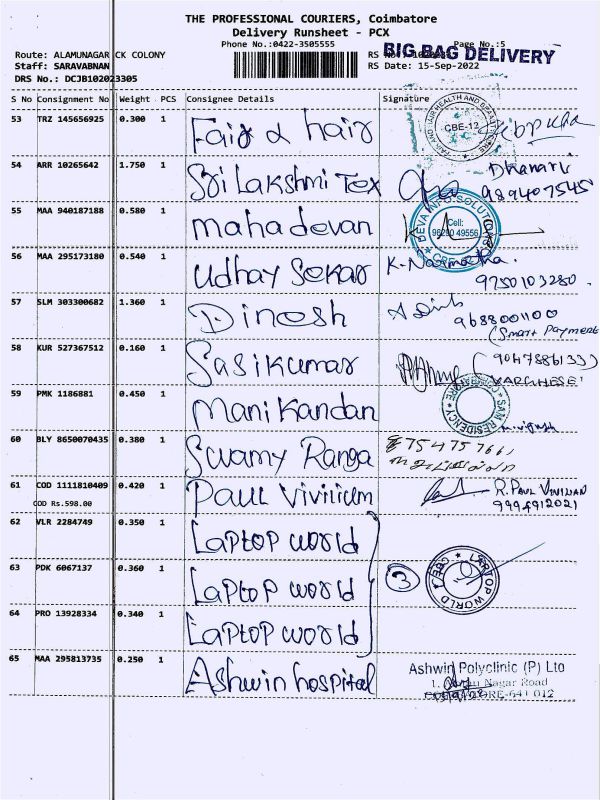 THE PROFESSIONAL COURIERS, Coimbatore
Delivery Runsheet - PCX
Phone No.:0422-3505555
Page No.:5
BIG BAG DELIVERY
Route: ALAMUNAGAR CK COLONY
RS No.:
Staff: SARAVABNAN
RS Date: 15-Sep-2022
DRS No.: DCJB102023305
S No Consignment No Weight PCS Consignee Details Signature
53 TRZ 145656925 0.300 1 Fair & hair
CBE-12
54 ARR 10265642 1.750 1 Sri Lakshmi Tex
989407545
55 MAA 940187188 0.580 1 mahadevan
DEVA INFO SOLUTIONS
Cell:
49556
56 MAA 295173180 0.540 1 Udhay Sekar
9750103280
57 SLM 303300682 1.360 1 Dinesh
9688001100
(Smart Payment
58 KUR 527367512 0.160 1 Sasikumar
(9047886133)
VARGHESE
59 PMK 1186881 0.450 1 Manikandan
SAN RESIDENCY
COIMBATORE
60 BLY 8650070435 0.380 1 Swamy Ranga
8754757661
61 COD 1111810409 0.420 1 Paul Vivilium
COD Rs.598.00
R. PAUL VIVILIAN
9994912021
62 VLR 2284749 0.350 1 Laptop world
63 PDK 6067137 0.360 1 Laptop world
3
LAPTOP WORLD
CBE-1
64 PRO 13928334 0.340 1 Laptop world
65 MAA 295813735 0.250 1 Ashwin hospital
Ashwin Polyclinic (P) Ltd
Nagar Road
641 012